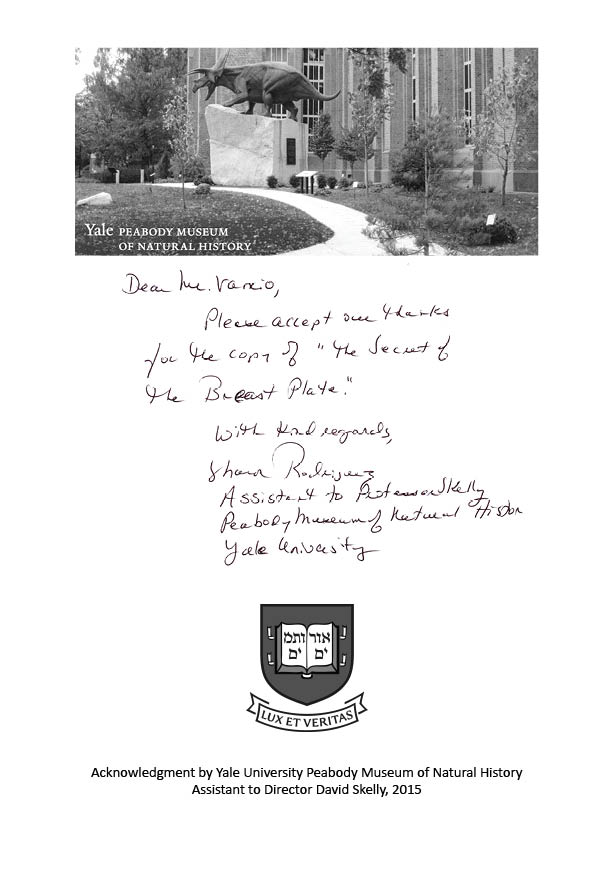 Yale PEABODY MUSEUM
OF NATURAL HISTORY
Dear Mr. Vancio,
Please accept our thanks
for the copy of "The Secret of
the Breast Plate."
With kind regards,
Rodriguez
Assistant to Professor Skelly
Peabody Museum of Natural Histor
Yale University
אורי ותמ
ים ים
LUX ET VERITAS
Acknowledgment by Yale University Peabody Museum of Natural History
Assistant to Director David Skelly, 2015